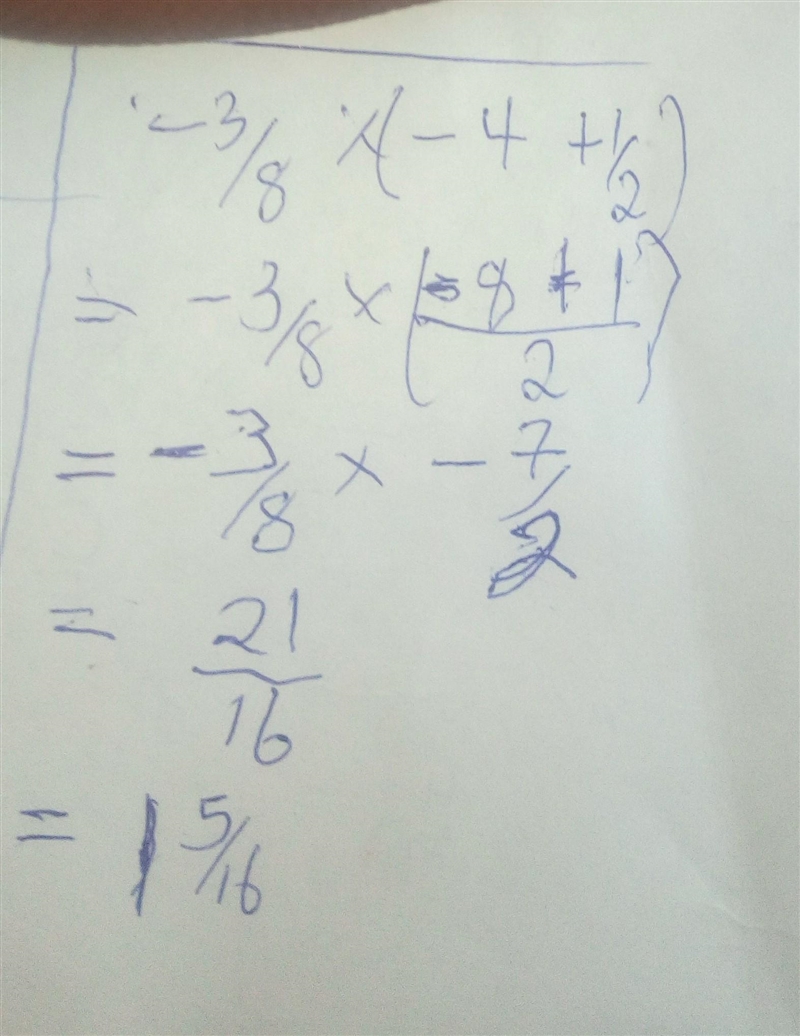 -3/8 ×(-4 +1/2)
= -3/8 × (-8+1/2)
= -3/8 × -7/2
= 21/16
= 1 5/16